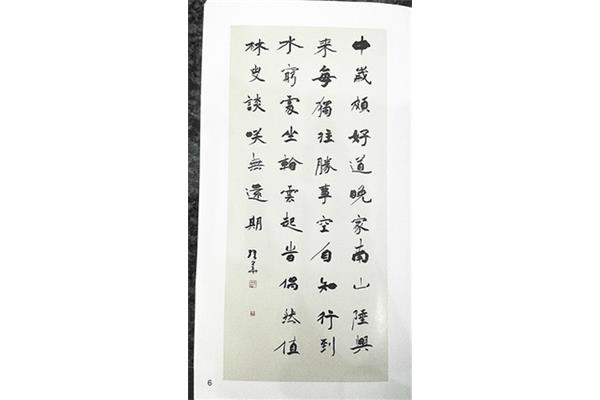 中歲頗好道晚家南山陲興
来每獨往勝事空自知行到
水窮處坐看雲起旹偶然值
林叟談咲無還期
6